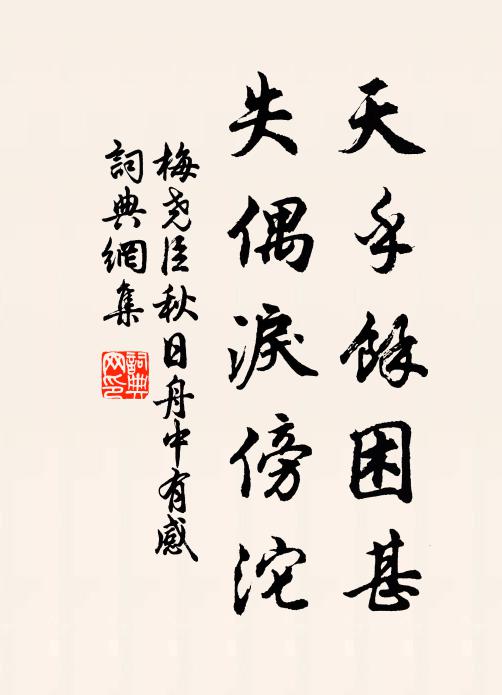 天乎餘困甚
失偶淚傍沱
梅尧臣秋日舟中有感
詞典網集
詞典网印